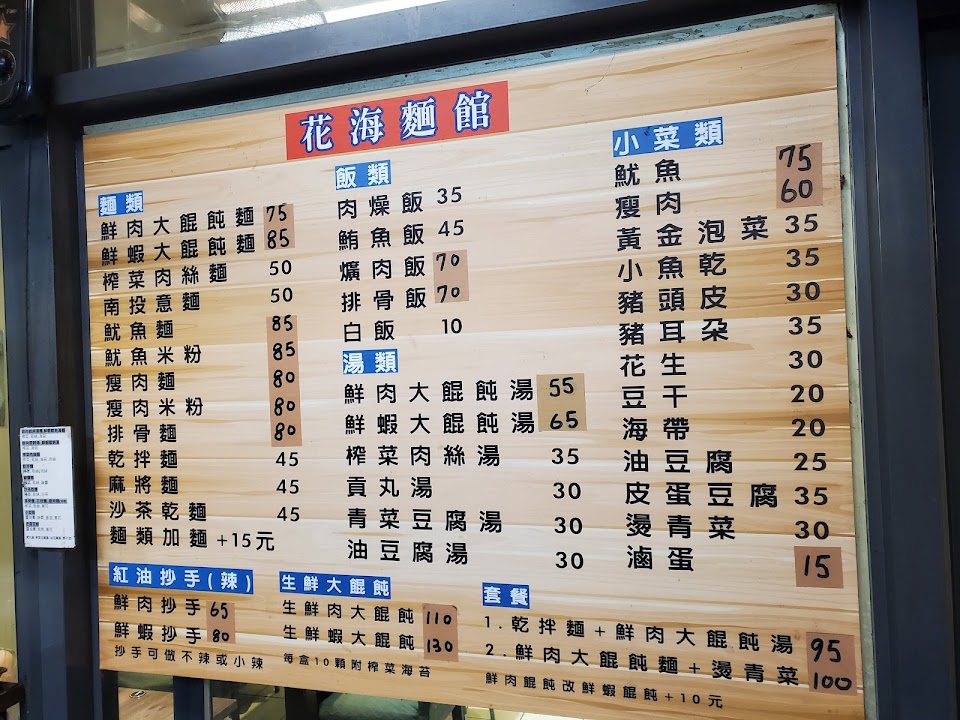 花海麵館
麵類
鮮肉大餛飩麵 75
鮮蝦大餛飩麵 85
榨菜肉絲麵 50
南投意麵 50
魷魚麵 85
魷魚米粉 85
瘦肉麵 80
瘦肉米粉 80
排骨麵 80
乾拌麵 45
麻將麵 45
沙茶乾麵 45
麵類加麵+15元
飯類
肉燥飯 35
鮪魚飯 45
爌肉飯 70
排骨飯 70
白飯 10
湯類
鮮肉大餛飩湯 55
鮮蝦大餛飩湯 65
榨菜肉絲湯 35
貢丸湯 30
青菜豆腐湯 30
油豆腐湯 30
小菜類
魷魚 75
瘦肉 60
黃金泡菜 35
小魚乾 35
豬頭皮 30
豬耳朵 35
花生 30
豆干 20
海帶 20
油豆腐 25
皮蛋豆腐 35
燙青菜 30
滷蛋 15
紅油抄手(辣)
鮮肉抄手 65
鮮蝦抄手 80
抄手可做不辣或小辣
生鮮大餛飩
生鮮肉大餛飩 110
生鮮蝦大餛飩 130
每盒10顆附榨菜海苔
套餐
1.乾拌麵+鮮肉大餛飩湯 95
2.鮮肉大餛飩麵+燙青菜 100
鮮肉餛飩改鮮蝦餛飩+10元